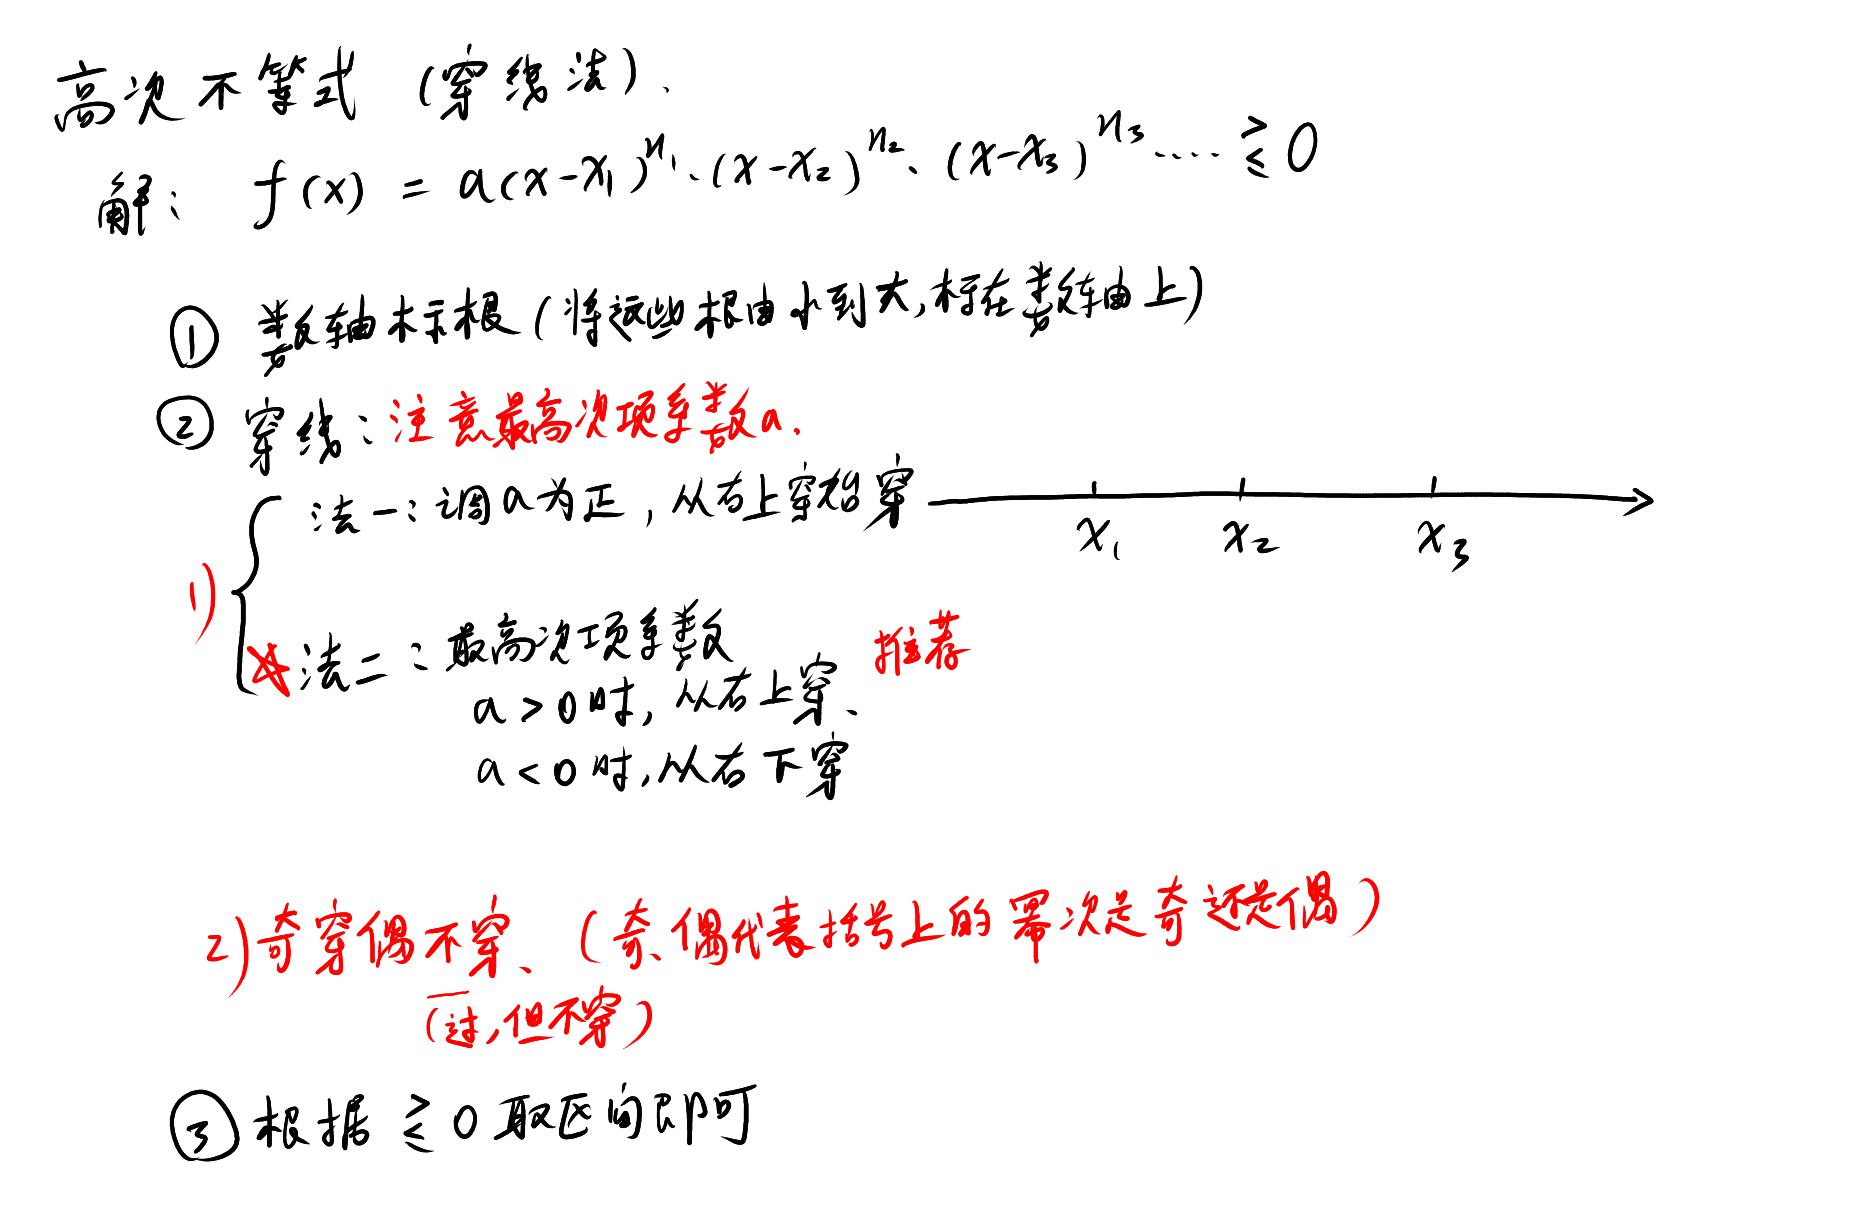 高次不等式 (穿线法).
解: f(x) = a(x-x₁)^n₁·(x-x₂)^n₂·(x-x₃)^n₃ ····· ≷ 0
① 数轴标根(将这些根由小到大,标在数轴上)
② 穿线: 注意最高次项系数a.
1)
法一: 调a为正, 从右上穿始穿
x₁ x₂ x₃
☆法二: 最高次项系数 推荐
a>0时, 从右上穿、
a<0时, 从右下穿
2)奇穿偶不穿、(奇、偶代表括号上的幂次是奇还是偶)
(过,但不穿)
③ 根据 ≷ 0 取区间即可